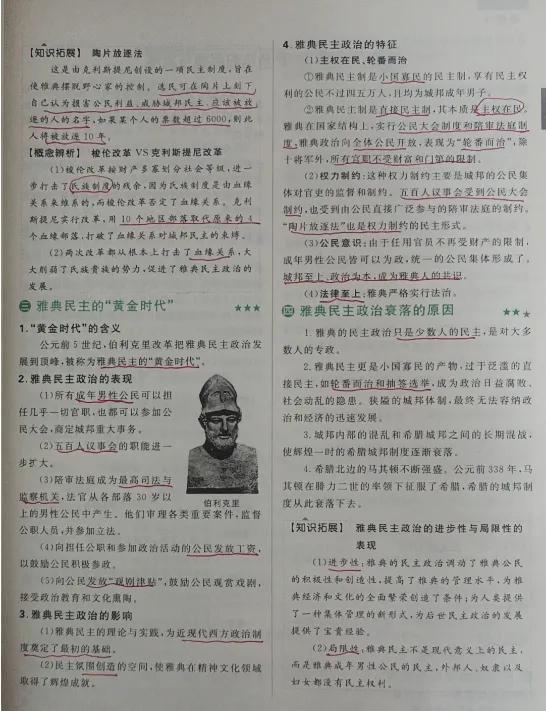 【知识拓展】 陶片放逐法
这是由克利斯提尼创设的一项民主制度，旨在
使雅典摆脱野心家的控制。选民可在陶片上刻下
自己认为损害公民利益、威胁城邦民主、应该被放
逐的人的名字，如果某个人的票数超过6000，则此
人将被放逐10年。
【概念辨析】 梭伦改革VS克利斯提尼改革
(1)梭伦改革按财产多寡划分社会等级，进一
步打击了氏族制度的残余，因为氏族制度是由血缘
关系来维系的，而梭伦改革否定了血缘关系。克利
斯提尼实行改革，用10个地区部落取代原来的4
个血缘部落，打破了血缘关系对城邦民主的束缚。
(2)两次改革都从根本上打击了血缘关系，大
大削弱了氏族贵族的势力，促进了雅典民主政治的
发展。
三 雅典民主的“黄金时代” ★★★
1.“黄金时代”的含义
公元前5世纪，伯利克里改革把雅典民主政治发
展到顶峰，被称为雅典民主的“黄金时代”。
2.雅典民主政治的表现
(1)所有成年男性公民可以担
任几乎一切官职，也都可以参加公
民大会，商定城邦重大事务。
(2)五百人议事会的职能进一
步扩大。
(3)陪审法庭成为最高司法与
监察机关，法官从各部落30岁以
上的男性公民中产生。他们审理各类重要案件，监督
公职人员，并参加立法。
伯利克里
(4)向担任公职和参加政治活动的公民发放工资，
以鼓励公民积极参政。
(5)向公民发放“观剧津贴”，鼓励公民观赏戏剧，
接受政治教育和文化熏陶。
3.雅典民主政治的影响
(1)雅典民主的理论与实践，为近现代西方政治制
度奠定了最初的基础。
(2)民主氛围创造的空间，使雅典在精神文化领域
取得了辉煌成就。
4.雅典民主政治的特征
(1)主权在民、轮番而治
①雅典民主制是小国寡民的民主制，享有民主权
利的公民不过四五万人，且均为城邦成年男子。
②雅典民主制是直接民主制，其本质是主权在民。
雅典在国家结构上，实行公民大会制度和陪审法庭制
度。雅典政治向全体公民开放，表现为“轮番而治”，除
十将军外，所有官职不受财富和门第的限制。
(2)权力制约：这种权力制约主要是城邦的公民集
体对官吏的监督和制约。五百人议事会受到公民大会
制约，也受到由公民直接广泛参与的陪审法庭的制约。
“陶片放逐法”也是权力制约的民主形式。
(3)公民意识：由于任用官员不再受财产的限制，
成年男性公民皆可以为政，统一的公民集体形成了。
城邦至上、政治为本，成为雅典人的共识。
(4)法律至上：雅典严格实行法治。
四 雅典民主政治衰落的原因 ★★
1.雅典的民主政治只是少数人的民主，是对大多
数人的专政。
2.雅典民主更是小国寡民的产物，过于泛滥的直
接民主，如轮番而治和抽签选举，成为政治日益腐败、
社会动乱的隐患。狭隘的城邦体制，最终无法容纳政
治和经济的迅速发展。
3.城邦内部的混乱和希腊城邦之间的长期混战，
使辉煌一时的希腊城邦制度逐渐衰落。
4.希腊北边的马其顿不断强盛。公元前338年，马
其顿在腓力二世的率领下征服了希腊，希腊的城邦制
度从此衰落下去。
【知识拓展】 雅典民主政治的进步性与局限性的
表现
(1)进步性：雅典的民主政治调动了雅典公民
的积极性和创造性，提高了雅典的管理水平，为雅
典经济和文化的全面繁荣创造了条件；为人类提供
了一种集体管理的新形式，为后世民主政治的发展
提供了宝贵经验。
(2)局限性：雅典民主不是现代意义上的民主，
而是雅典成年男性公民的民主，外邦人、奴隶以及
妇女都没有民主权利。